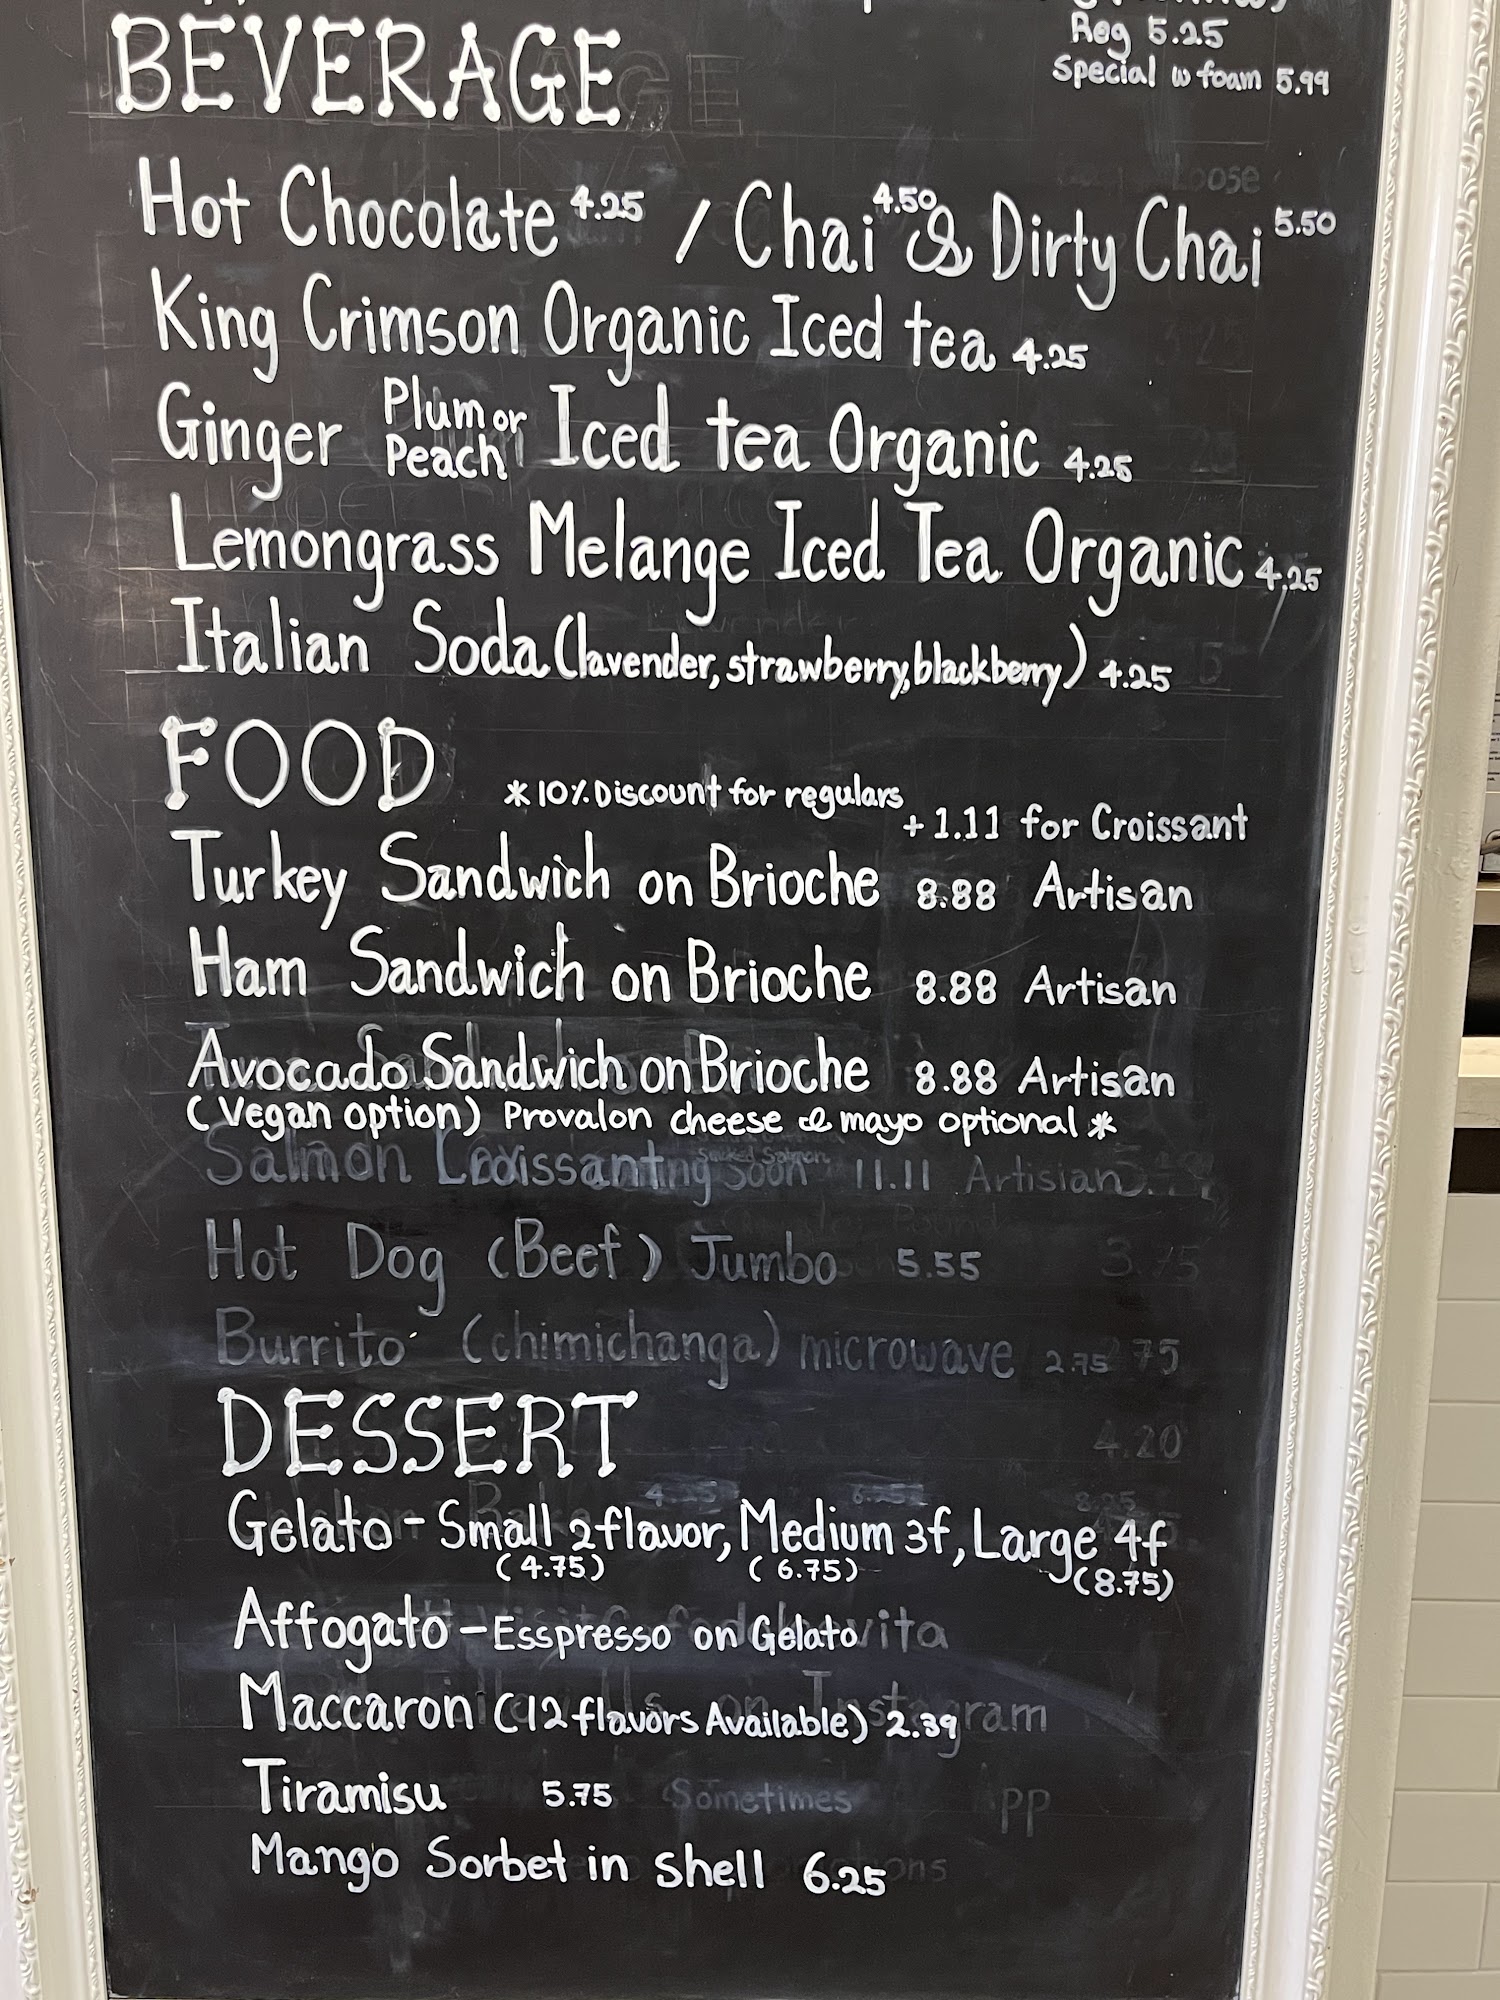 Reg 5.25
Special w foam 5.99
BEVERAGE
Hot Chocolate 4.25 / Chai 4.50 & Dirty Chai 5.50
King Crimson Organic Iced tea 4.25
Ginger Plum or Peach Iced tea Organic 4.25
Lemongrass Melange Iced Tea Organic 4.25
Italian Soda (lavender, strawberry, blackberry) 4.25
FOOD *10% Discount for regulars
+ 1.11 for Croissant
Turkey Sandwich on Brioche 8.88 Artisan
Ham Sandwich on Brioche 8.88 Artisan
Avocado Sandwich on Brioche 8.88 Artisan
(Vegan option) Provalon cheese & mayo optional *
Salmon Croissant Smoked Salmon Soon 11.11 Artisian
Hot Dog (Beef) Jumbo 5.55 3.75
Burrito (chimichanga) microwave 2.75 75
DESSERT 4.20
Gelato - Small 2 flavor, Medium 3f, Large 4f
(4.75) (6.75) (8.75)
Affogato - Esspresso on Gelato vita
Maccaron (12 flavors Available) 2.39 Instagram
Tiramisu 5.75 Sometimes
Mango Sorbet in shell 6.25